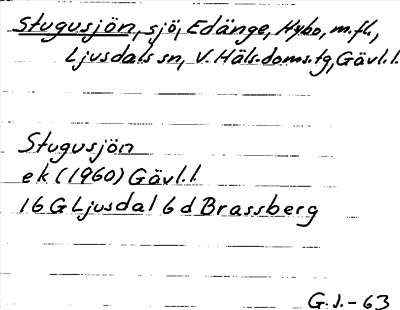 Stugusjön, sjö, Edänge, Hybo, m.fl.,
Ljusdals sn, V. Häls. doms. tg, Gävl. l.
Stugusjön
ek (1960) Gävl. l.
16 G Ljusdal 6 d Brassberg
G. J. - 63